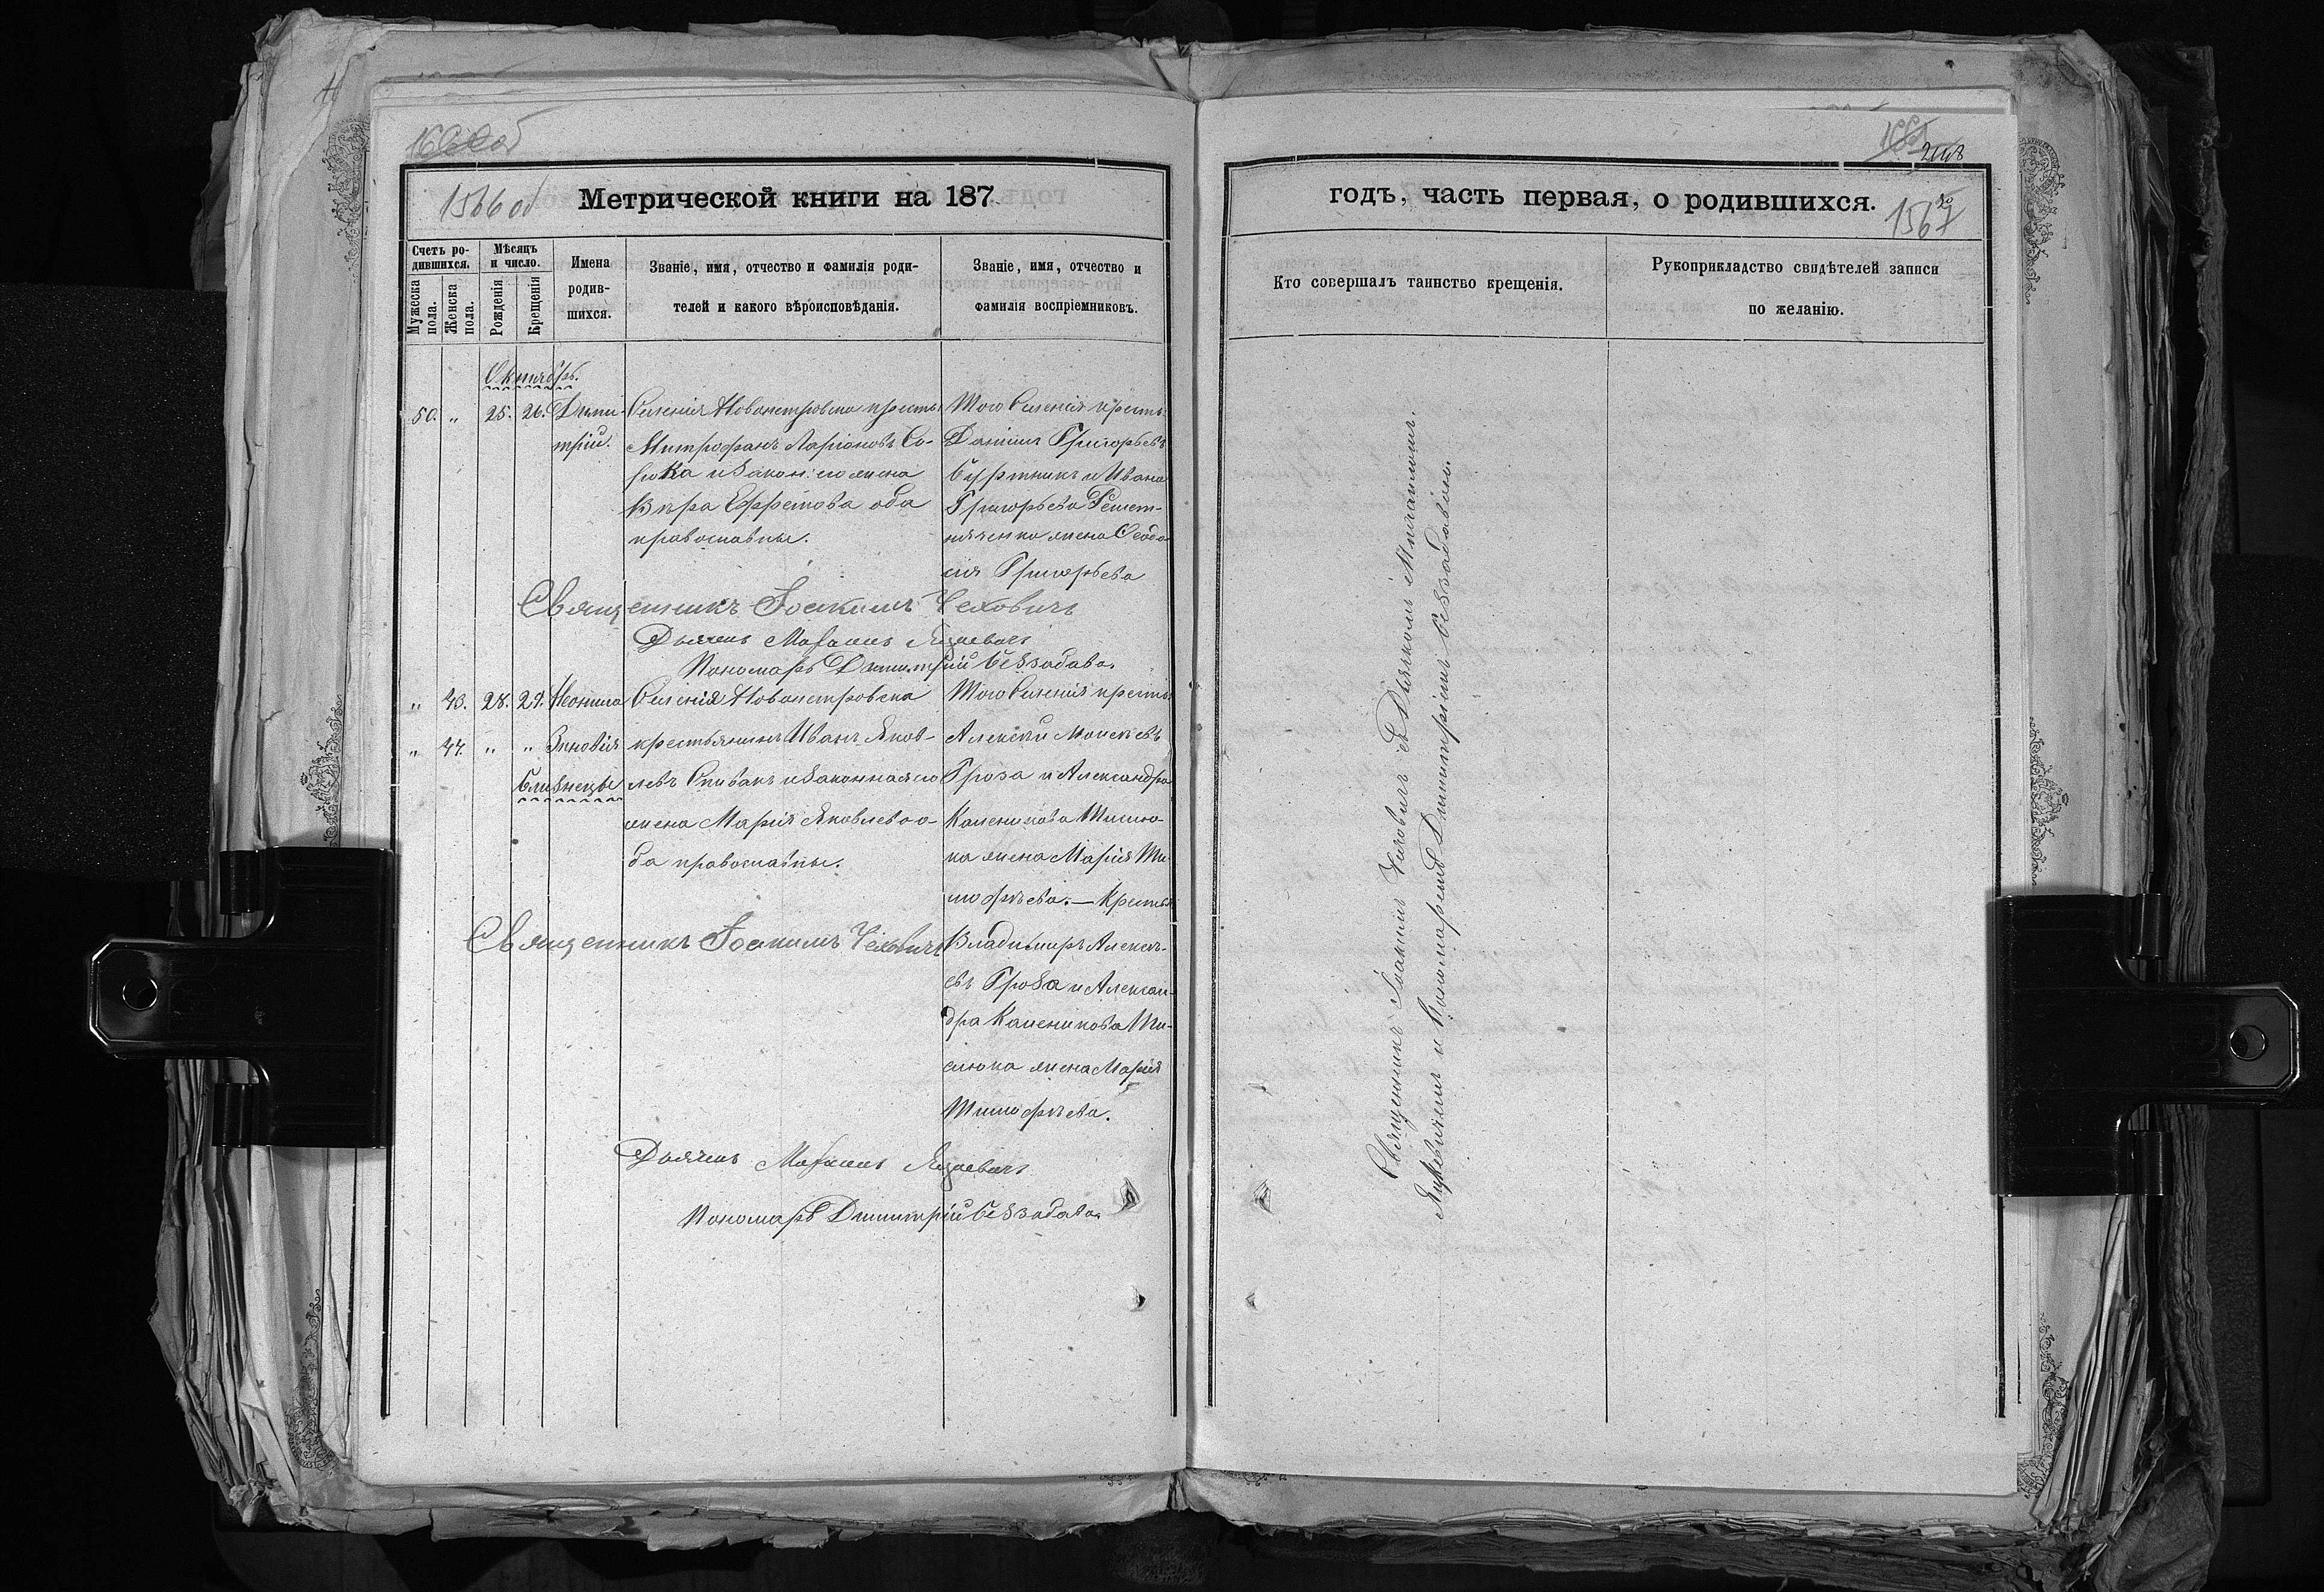 1566 об
Метрической книги на 187
Счетъ ро-
дившихся.
Мужеска пола.
Женска пола.
Мѣсяцъ
и число.
Рожденія
Крещенія
Имена
родив-
шихся.
Званіе, имя, отчество и фамилія роди-
телей и какого вѣроисповѣданія.
Званіе, имя, отчество и
фамилія воспріемниковъ.
Октябрь.
50. " 25. 26. Дими-
трій.
Селенія Новопетровка крестья
Митрофанъ Ларіоновъ Со-
рока и закон: его жена
Вѣра Ефремова оба
православные.
Того Селенія кресть:
Даніилъ Григорьевъ
и Ивана
Григорьева Решет-
няченко жена Ѳеодо-
сія Григорьева
Священникъ Іоакимъ Чехович
Дьячекъ
Пономарь Димитрій Беззабава
" 43. 28. 29. Неонила
" 44. " " Зиновія
близнецы
Селенія Новопетровка
крестьянинъ Иванъ Яков-
левъ Спивакъ и законная его
жена Марія Яковлева о-
ба православные.
Того Селенія кресть
Алексѣй Моисеевъ
Гроза и Александра
Каленикова Тисю-
ка жена Марія Ти-
мофѣева. — Кресть
Владимиръ Алексѣ-
евъ Гроза и Алексан-
дра Каленикова Ти-
сюка жена Марія
Тимофѣева.
Священникъ Іоакимъ Чехович
Дьячекъ
Пономарь Димитрій Беззабава
годъ, часть первая, о родившихся.
1567
Кто совершалъ таинство крещенія.
Рукоприкладство свидѣтелей записи
по желанію.
Священникъ Іоакимъ Чеховичъ съ Дьячкомъ
и Пономаремъ Димитріемъ Беззабавою.